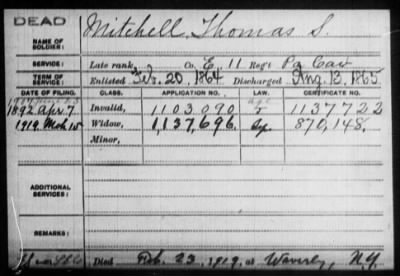 DEAD
NAME OF SOLDIER: Mitchell, Thomas S.
SERVICE: Late rank, Co. E, 11 Reg't Pa Cav
TERM OF SERVICE: Enlisted Feb. 20, 1864 Discharged Aug. 13, 1865
DATE OF FILING. CLASS. APPLICATION NO. LAW. CERTIFICATE NO.
1892 Apr. 7 Invalid, 1103090 1137722
1919 Mch 15 Widow, 1,137,696. 870,148.
Minor,
ADDITIONAL SERVICES:
REMARKS:
Died Feb. 23, 1919, at Waverly, N.Y.